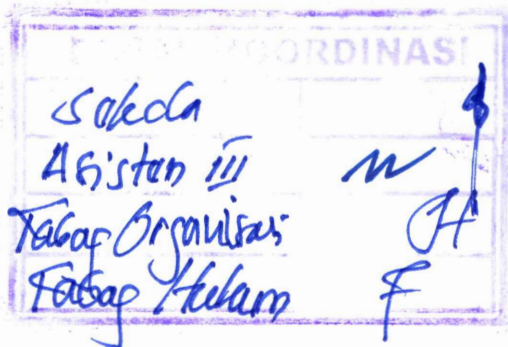 KOORDINASI
Sekda
Asisten III
Kabag Organisasi
Kabag Hukum